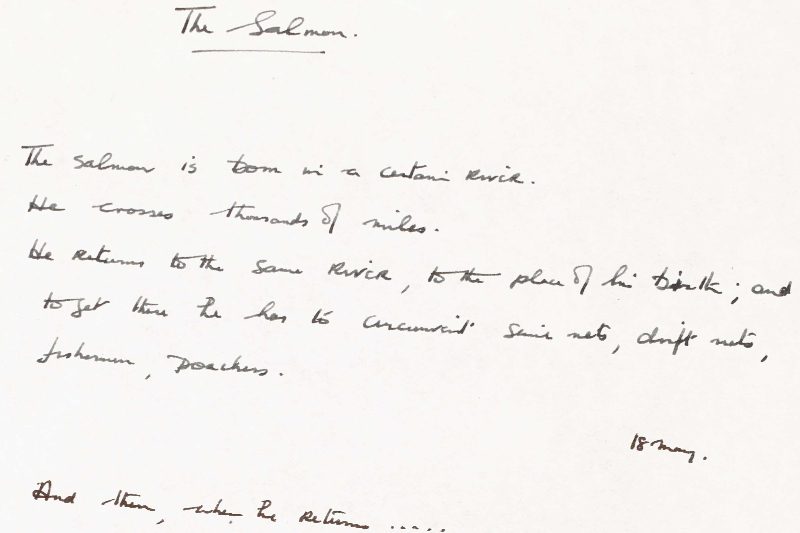 The Salmon.
The salmon is born in a certain River.
He crosses thousands of miles.
He returns to the same River, to the place of his birth; and
to get there he has to circumvent seine nets, drift nets,
fishermen, poachers.
18 May.
And then, when he returns .....